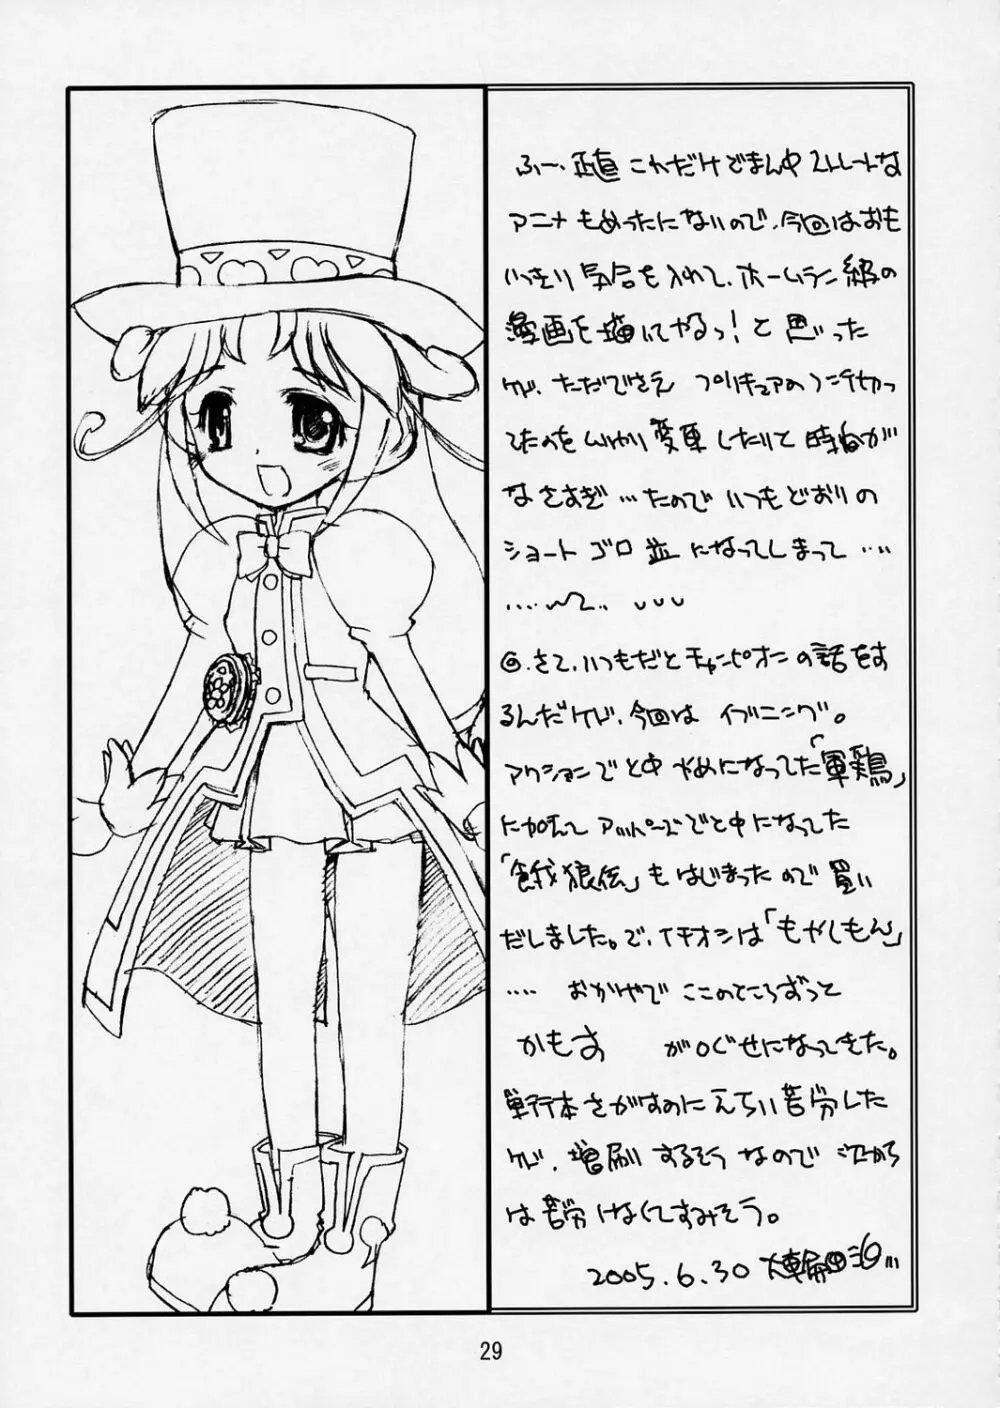 ふー、正直 これだけど まん中 ストレートな
アニメ もめったにないので、今回はおも
いっきり 気合を入れて、ホームラン級の
漫画を描いてやるっ！と思いった
けど、ただでさえ プリキュアの
たのを 変更したりと 時間が
なさすぎ…たので いつもどおりの
ショートゴロ並になってしまって……
◎.さて、いつもだとチャンピオンの話をす
るんだけど、今回は イブニング。
アクションでと中 やめになってた「軍鶏」
に加えて アッパーズでと中になってた
「餓狼伝」もはじまったので 買い
だしました。で、イチオシは「もやしもん」
…. おかげで ここのところずっと
かもす が口ぐせになってきた。
単行本さがすのにえらい苦労した
けど、増刷するそうなので 次から
は苦労 けなくてすみそう。
2005.6.30
29